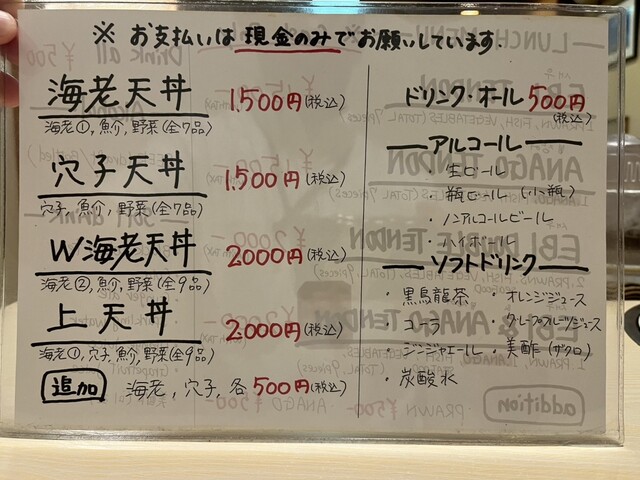 ※ お支払いは現金のみでお願いしています.
海老天丼 1,500円(税込)
海老①, 魚介, 野菜(全7品)
穴子天丼 1,500円(税込)
穴子, 魚介, 野菜(全7品)
W海老天丼 2000円(税込)
海老②, 魚介, 野菜(全9品)
上天丼 2,000円(税込)
海老①, 穴子, 魚介, 野菜(全9品)
追加 海老, 穴子, 各500円(税込)
ドリンク・オール 500円
(税込)
アルコール
・生ビール
・瓶ビール (小瓶)
・ノンアルコールビール
・ハイボール
ソフトドリンク
・黒烏龍茶 ・オレンジジュース
・コーラ ・グレープフルーツジュース
・ジンジャエール ・美酢(ザクロ)
・炭酸水